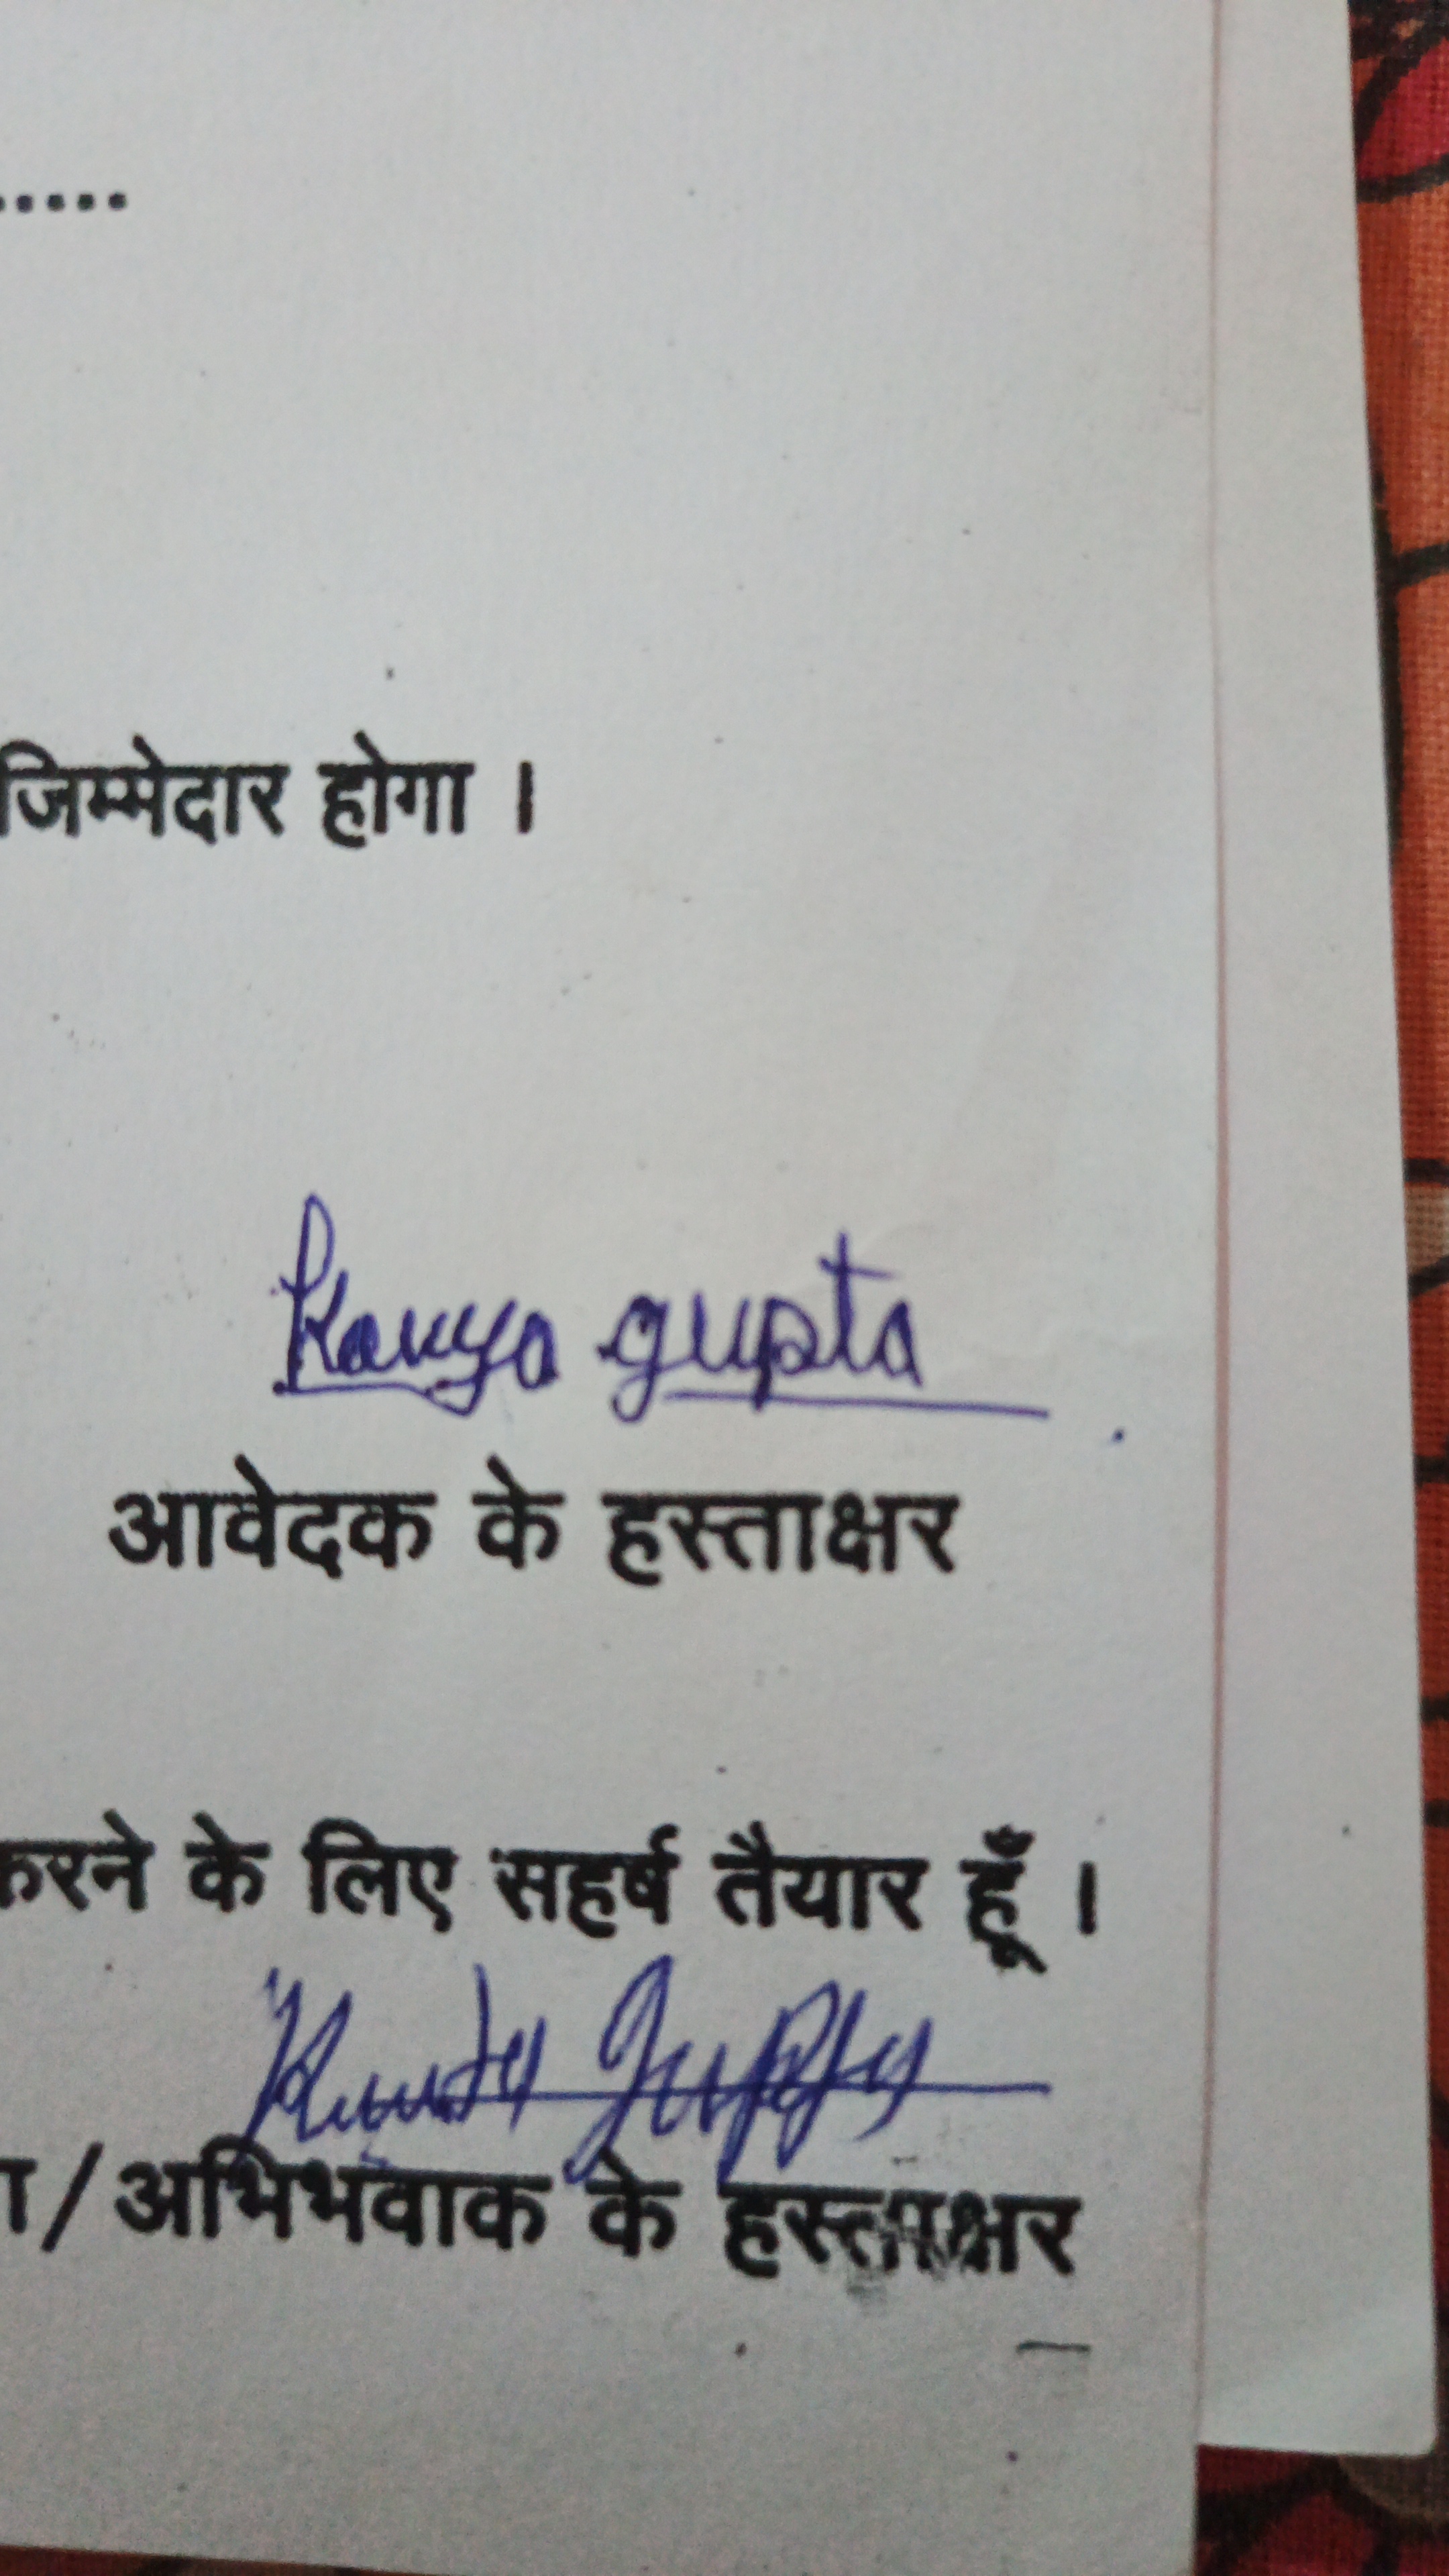 .....
जिम्मेदार होगा ।
Kavya gupta
आवेदक के हस्ताक्षर
करने के लिए सहर्ष तैयार हूँ ।
Gupta
/अभिभवाक के हस्ताक्षर